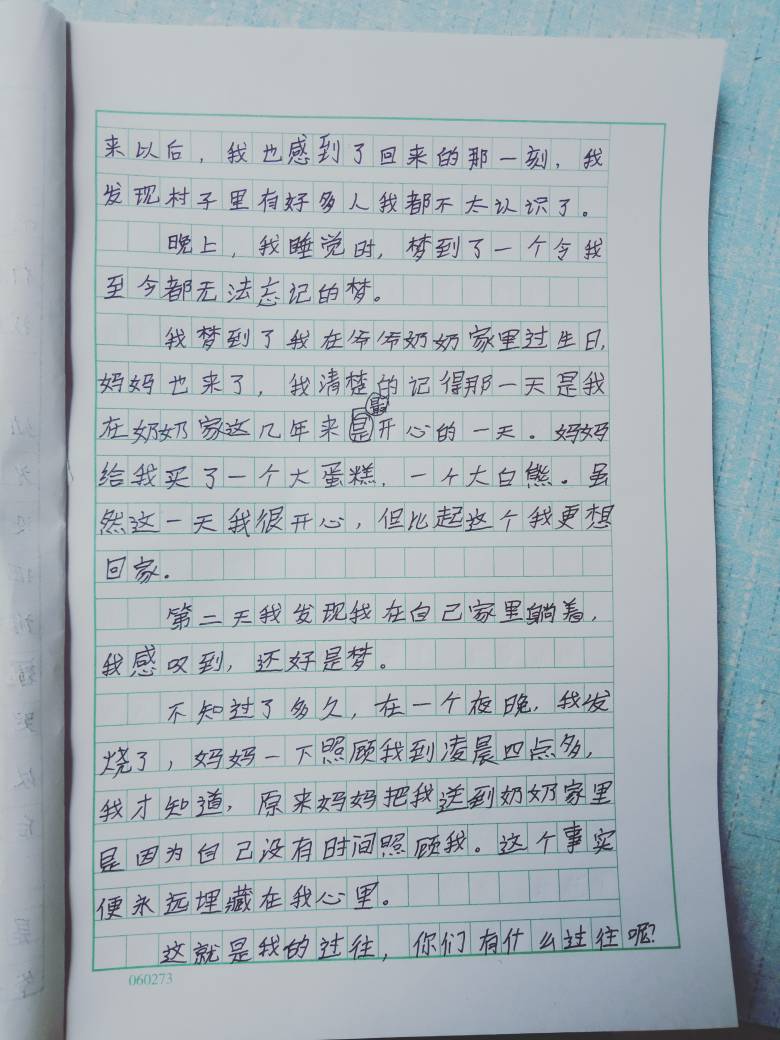 来以后，我也感到了回来的那一刻，我
发现村子里有好多人我都不太认识了。
晚上，我睡觉时，梦到了一个令我
至今都无法忘记的梦。
我梦到了我在爷爷奶奶家里过生日，
妈妈也来了，我清楚的记得那一天是我
最
在奶奶家这几年来是开心的一天。妈妈
给我买了一个大蛋糕，一个大白熊。虽
然这一天我很开心，但比起这个我更想
回家。
第二天我发现我在自己家里躺着，
我感叹到，还好是梦。
不知过了多久，在一个夜晚，我发
烧了，妈妈一下照顾我到凌晨四点多，
我才知道，原来妈妈把我送到奶奶家里
是因为自己没有时间照顾我。这个事实
便永远埋藏在我心里。
这就是我的过往，你们有什么过往呢？
060273